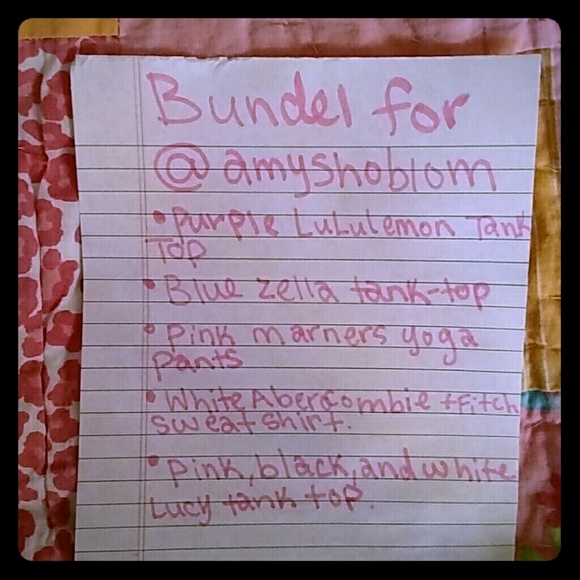 Bundel for
@amyshoblom
• Purple LuLulemon Tank
Top
• Blue zella tank-top
• Pink marners yoga
pants
• White Abercombie + Fitch
sweat shirt.
• Pink, black, and white
Lucy tank top.